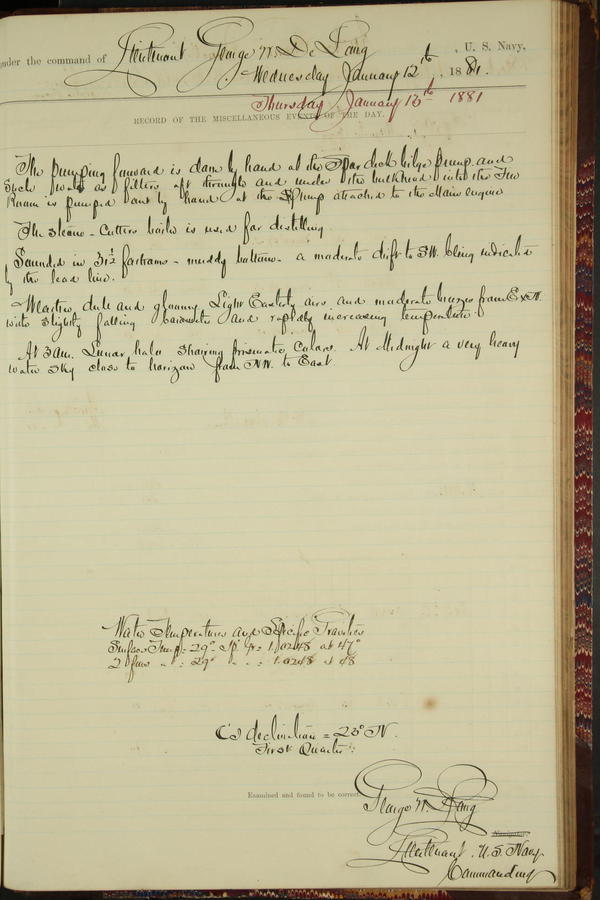 under the command of Lieutenant George W. De Long, U. S. Navy,
Wednesday January 12th, 1881.
Thursday January 13th 1881
RECORD OF THE MISCELLANEOUS EVENTS OF THE DAY.
The pumping forward is done by hand at the Spar deck bilge pump and
Such water as filters aft through and under the bulkhead into the Fire
Room is pumped out by hand at the Pump attached to the Main engine
The steam-Cutters boiler is used for distilling
Sounded in 31½ fathoms - muddy bottom - a moderate drift to SW. being indicated
by the lead line.
Weather dull and gloomy, Light Easterly airs and moderate breezes from E x N.
with slightly falling barometer and rapidly increasing temperature.
At 3 am. Lunar halo showing prismatic Colors. At Midnight a very heavy
water sky close to horizon from NW. to East
Water Temperatures and Specific Gravities
Surface Temp = 29° Sp. Gr = 1.0248 at 47°
20 fms " = 29° " " = 1.0248 at 48
☾'s declination = 23° N.
First Quarter
Examined and found to be correct.
George W. De Long
Navigator.
Lieutenant, U.S. Navy
Commanding